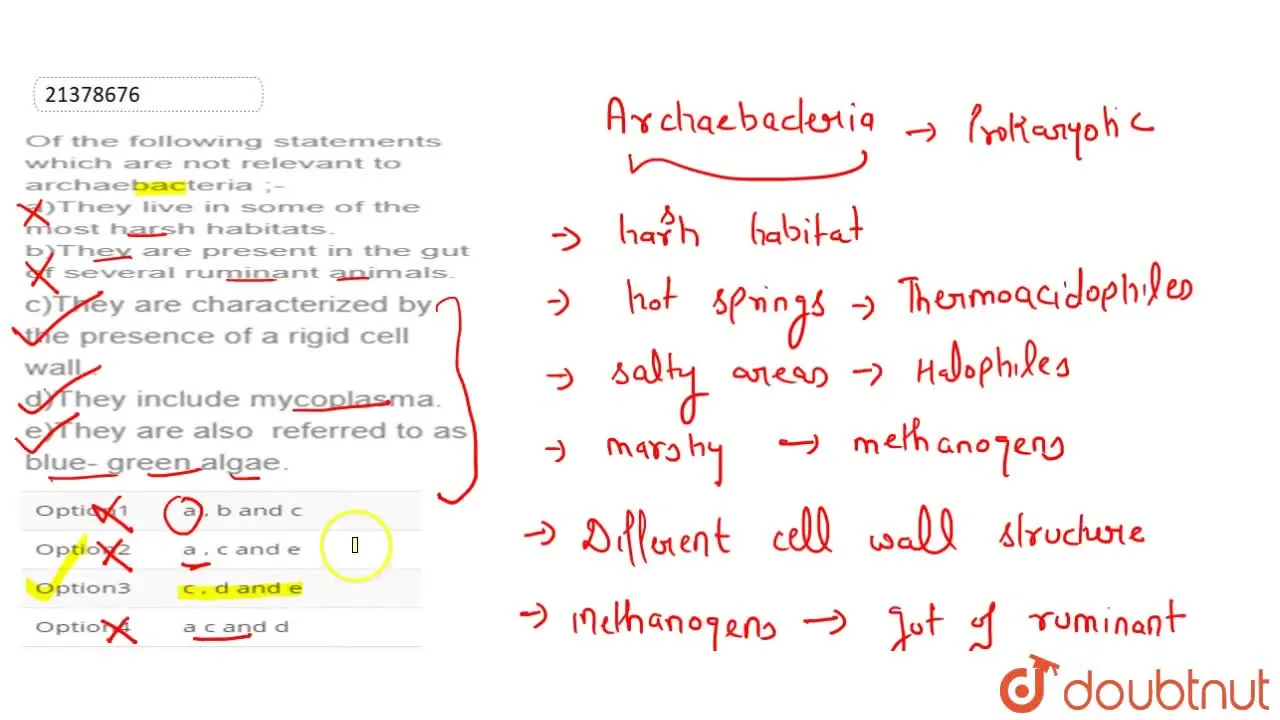 21378676
Of the following statements
which are not relevant to
archaebacteria ;-
a)They live in some of the
most harsh habitats.
b)They are present in the gut
of several ruminant animals.
c)They are characterized by
the presence of a rigid cell
wall
d)They include mycoplasma.
e)They are also referred to as
blue- green algae.
Option1 a , b and c
Option2 a , c and e
Option3 c , d and e
Option4 a c and d
Archaebacteria → Prokaryotic
→ harsh habitat
→ hot springs → Thermoacidophiles
→ salty areas → Halophiles
→ marshy → methanogens
→ Different cell wall structure
→ methanogens → gut of ruminant
doubtnut